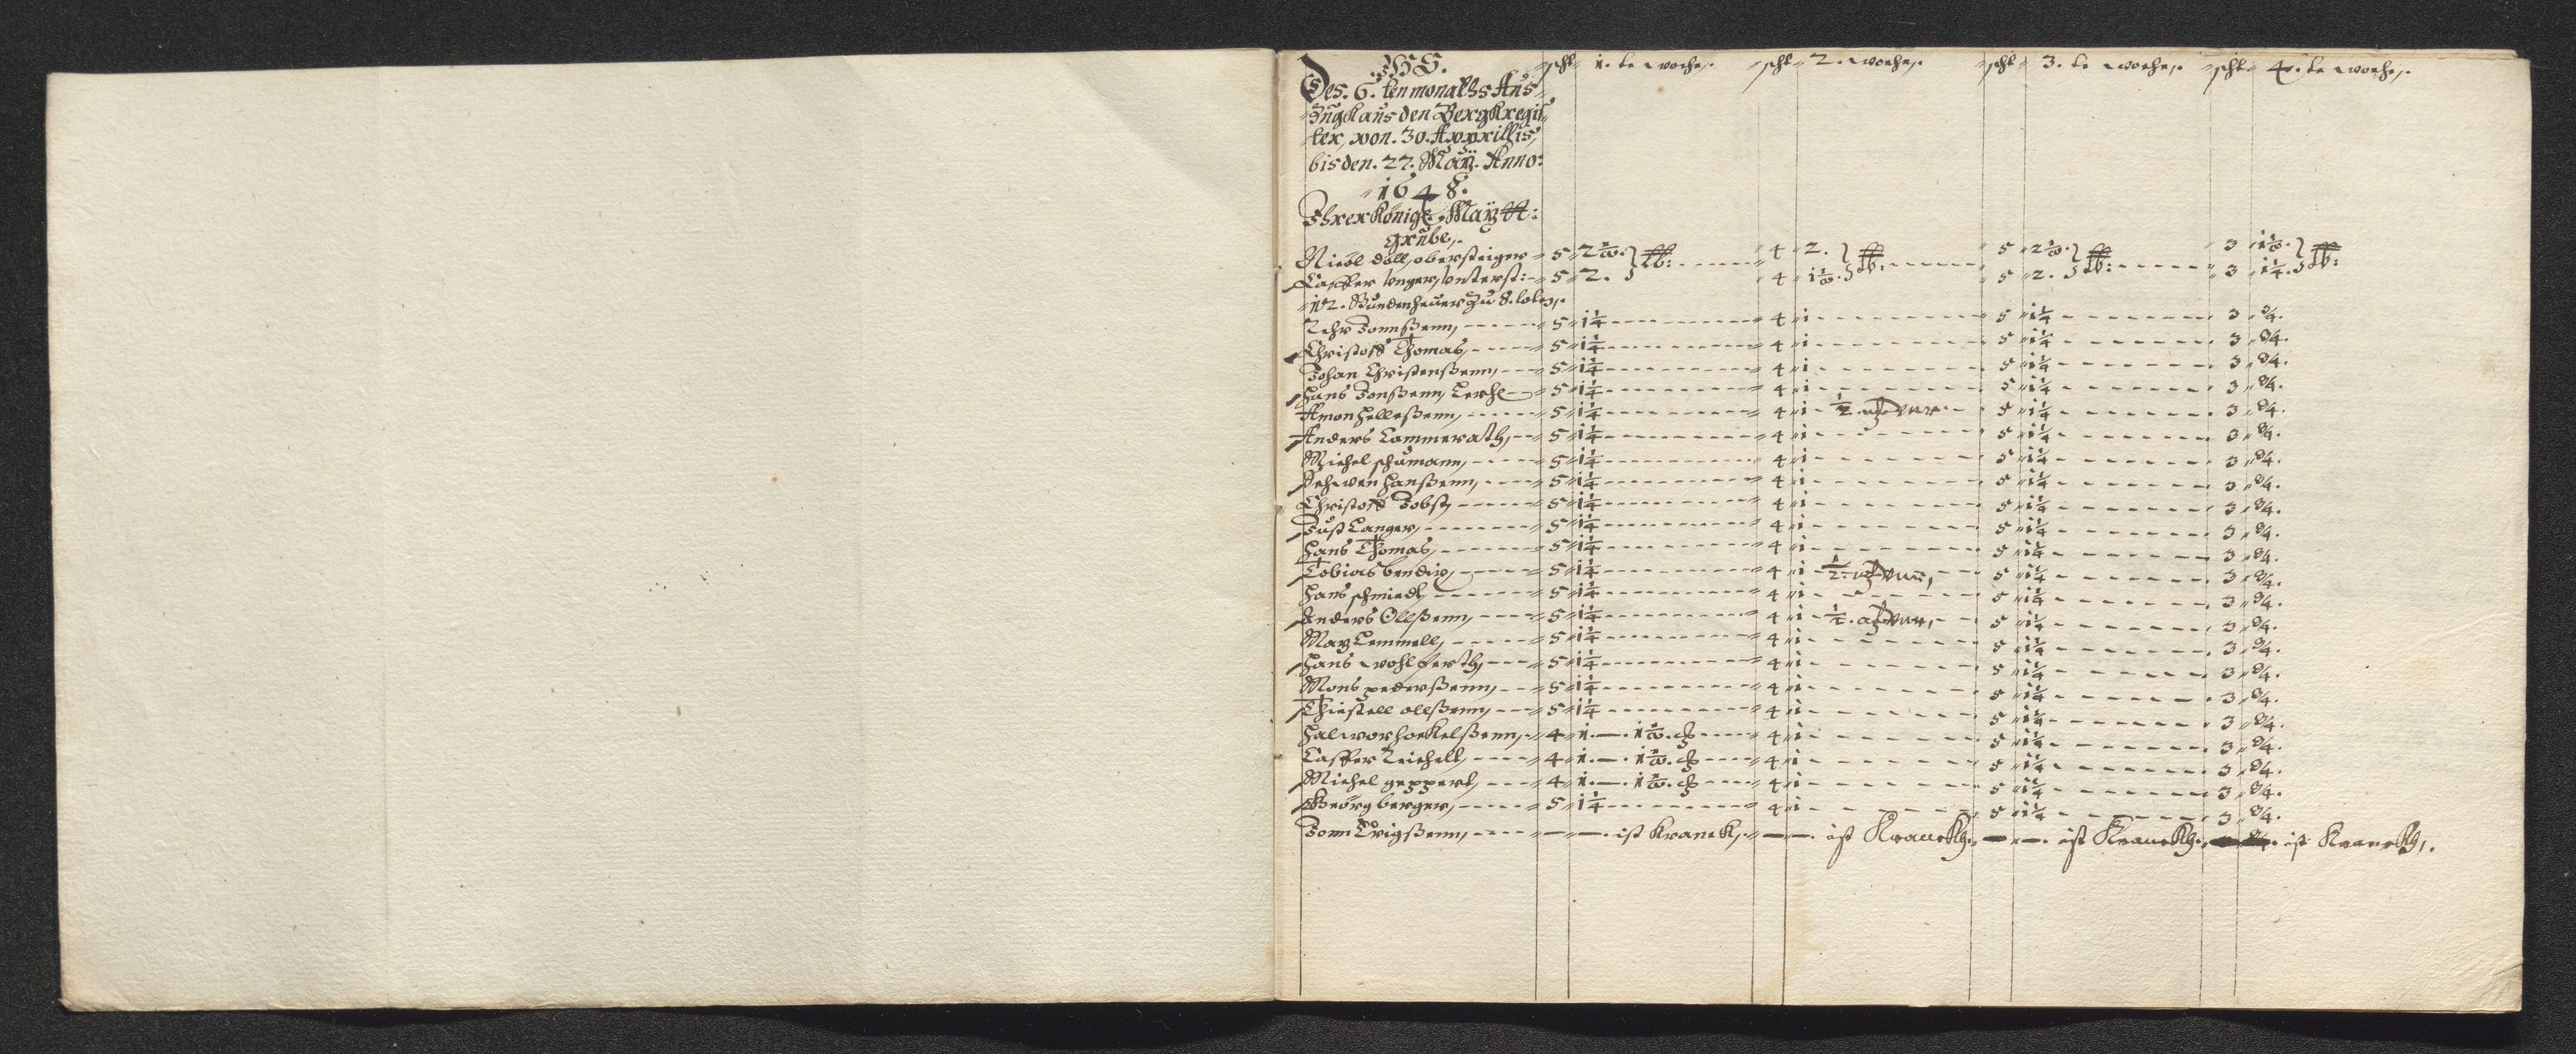 JHS. schl 1. te woche,. schl 2. woche,. schl 3. te woche,. schl 4. te woche,.
Des. 6. ten monaths Aus
Zugk aus den Bergkregis
ter, von. 30. Apprillis,
bis den. 27. Maÿ. Anno:
1648.
Ihrer Königl. Maÿtt:
grube,.
Nicol döll, obersteiger 5 4 2. 5 3
Casper Unger, Unterst: 5 2. 4 5 2. 3 1¼.
12. Bundenheuer Zu 8. loln,.
Lehr Tonnßenn, 5 1¼ 4 1 5 1¼ 3 ¾.
Christoff Thomas, 5 1¼ 4 1 5 1¼ 3 ¾.
Johan Christenßenn, 5 1¼ 4 1 5 1¼ 3 ¾.
Hans Jonßenn, Lerche 5 1¼ 4 1 5 1¼ 3 ¾.
Amon Helleßenn, 5 1¼ 4 1 ½. 5 1¼ 3 ¾.
Anders Cammerath, 5 1¼ 4 1 5 1¼ 3 ¾.
Michel schumann, 5 1¼ 4 1 5 1¼ 3 ¾.
Sehwen Hanßenn, 5 1¼ 4 1 5 1¼ 3 ¾.
Christoff Jobst, 5 1¼ 4 1 5 1¼ 3 ¾.
Just Langer, 5 1¼ 4 1 5 1¼ 3 ¾.
Hans Thomas, 5 1¼ 4 1 5 1¼ 3 ¾.
Tobias bendix, 5 1¼ 4 1 ½. 5 1¼ 3 ¾.
Hans schmiedt, 5 1¼ 4 1 5 1¼ 3 ¾.
Anders Ollßenn, 5 1¼ 4 1 ½. 5 1¼ 3 ¾.
Max Lemmell, 5 1¼ 4 1 5 1¼ 3 ¾.
Hans wohlferth, 5 1¼ 4 1 5 1¼ 3 ¾.
Mons pederßenn, 5 1¼ 4 1 5 1¼ 3 ¾.
Thiestell ollßenn, 5 1¼ 4 1 5 1¼ 3 ¾.
Halwor hoekelßenn, 4 1. 4 1 5 1¼ 3 ¾.
Casper Teichell, 4 1. 4 1 5 1¼ 3 ¾.
Michel geppert, 4 1. 4 1 5 1¼ 3 ¾.
Georg berger, 5 1¼ 4 1 5 1¼ 3 ¾.
Tonn Trigßenn, ist kranck,. ist Kranckh., ist Kranckh., ist Kranckh,.